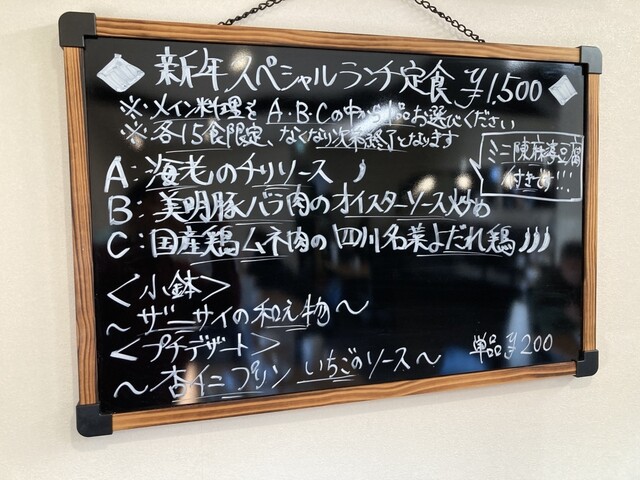 新年スペシャルランチ定食 ¥1,500
※メイン料理をA・B・Cの中から1品お選びください
※各15食限定、なくなり次第終了となります
ミニ陳麻婆豆腐
付きです!!!
A:海老のチリソース
B:美明豚バラ肉のオイスターソース炒め
C:国産鶏ムネ肉の四川名菜よだれ鶏
<小鉢>
~ザーサイの和え物~
<プチデザート>
単品¥200
~杏仁プリン いちごのソース~